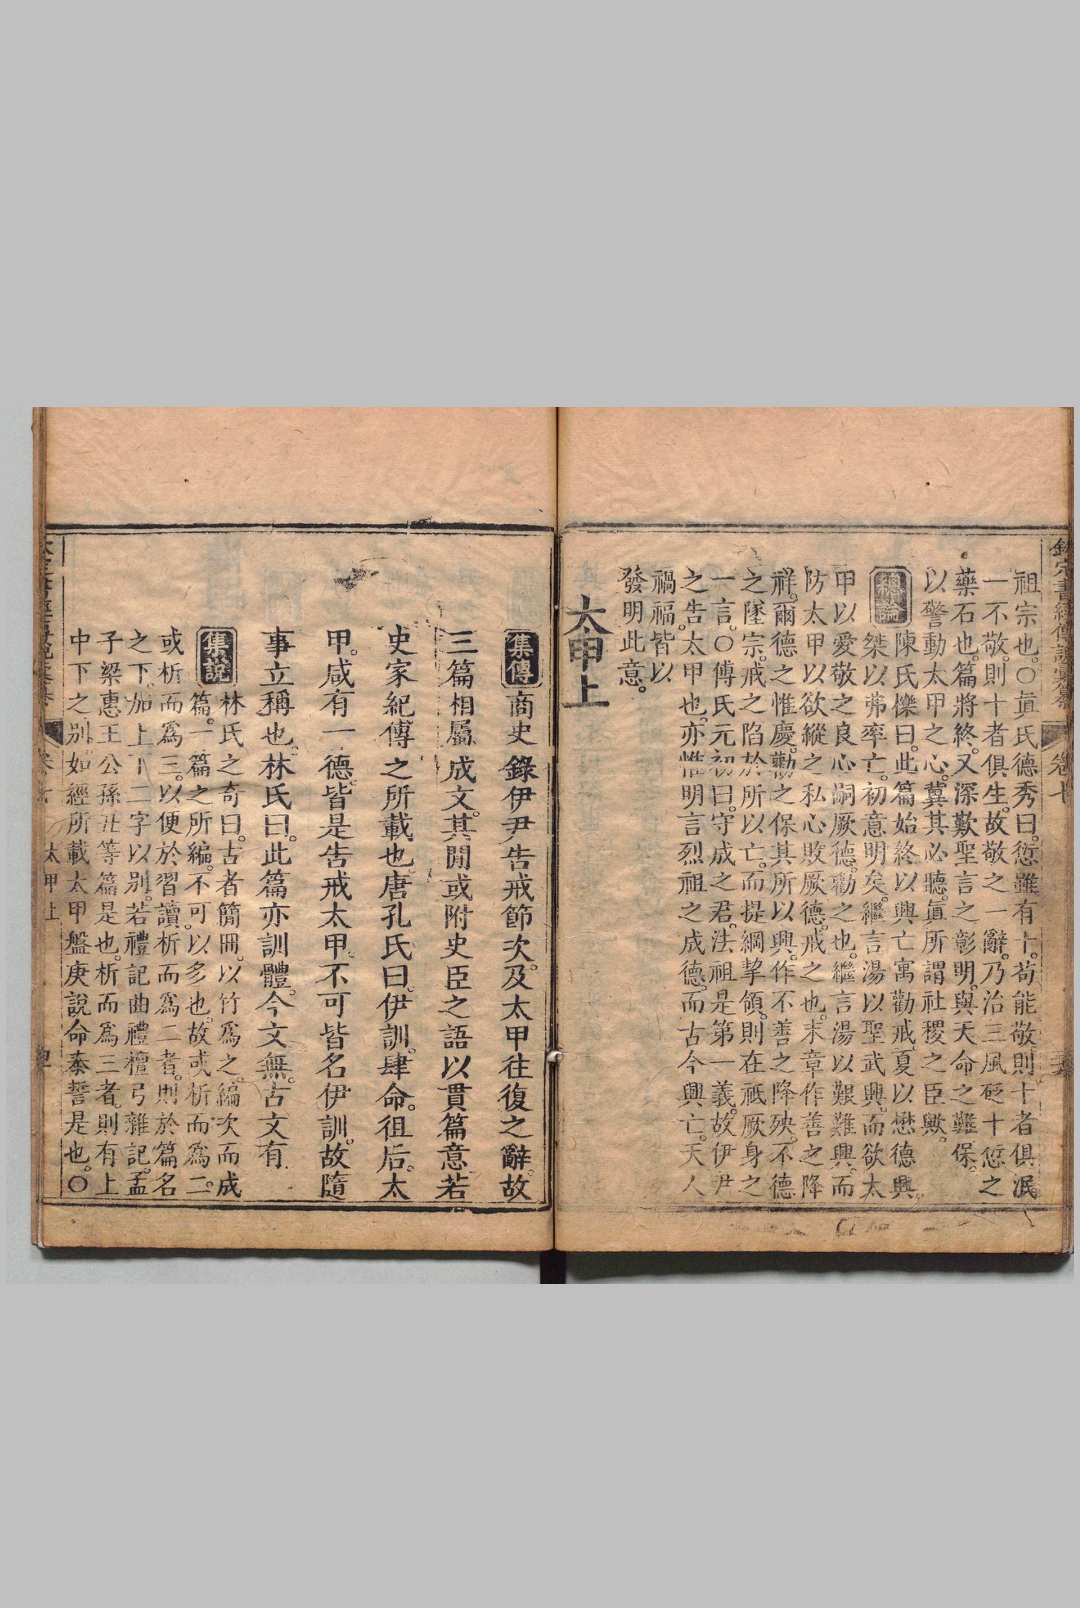 欽定書經傳說彙纂 卷七
祖宗也。○眞氏德秀曰。愆雖有十。苟能敬則十者俱泯。
一不敬。則十者俱生。故敬之一辭。乃治三風砭十愆之
藥石也。篇將終。又深歎聖言之彰明。與天命之難保。
以警動太甲之心。冀其必聽。眞所謂社稷之臣歟。
總論 陳氏櫟曰。此篇始終以興亡寓勸戒。夏以懋德興。
桀以弗率亡。初意明矣。繼言湯以聖武興。而欲太
甲以愛敬之良心嗣厥德。勸之也。繼言湯以艱難興。而
防太甲以欲縱之私心敗厥德。戒之也。末章作善之降
祥。爾德之惟慶。勸之保其所以興。作不善之降殃。不德
之墜宗。戒之陷於所以亡。而提綱挈領。則在祗厥身之
一言。○傅氏元初曰。守成之君。法祖是第一義。故伊尹
之告太甲也。亦惟明言烈祖之成德。而古今興亡。天人
禍福。皆以
發明此意。
太甲上
集傳 商史錄伊尹告戒節次。及太甲往復之辭。故
三篇相屬成文。其閒或附史臣之語以貫篇意。若
史家紀傳之所載也。唐孔氏曰。伊訓。肆命。徂后。太
甲。咸有一德。皆是告戒太甲。不可皆名伊訓。故隨
事立稱也。林氏曰。此篇亦訓體。今文無。古文有。
集說 林氏之奇曰。古者簡冊。以竹爲之。編次而成
篇。一篇之所編。不可以多也。故或析而爲二。
或析而爲三。以便於習讀。析而爲二者。則於篇名
之下。加上下二字以別。若禮記曲禮檀弓雜記。孟
子梁惠王公孫丑等篇是也。析而爲三者。則有上
中下之別。如經所載太甲盤庚說命泰誓是也。○
太甲上